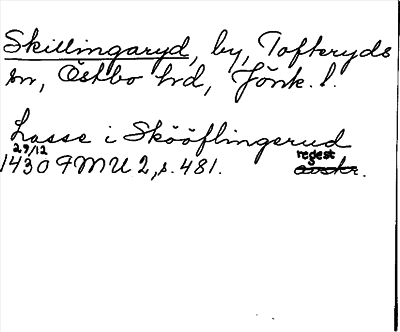 Skillingaryd, by, Tofteryds
sn, Östbo hd, Jönk. l.
Lasse i Skööflingerud
29/12
1430 FMU 2, s. 481. regest
avskr.